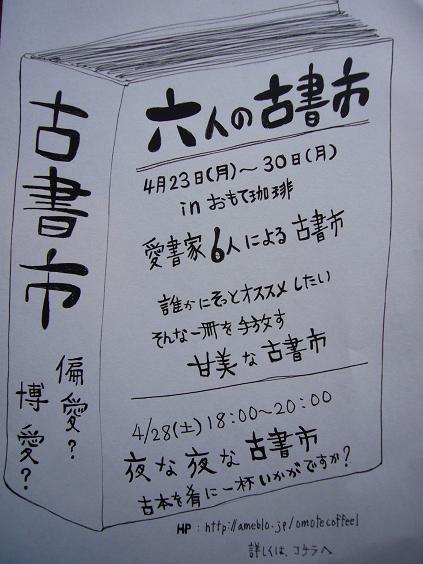 古書市
偏愛?
博愛?
六人の古書市
4月23日(月)～30日(月)
in おもて珈琲
愛書家6人による古書市
誰かにそっとオススメしたい
そんな一冊を手放す
甘美な古書市
4/28(土)18:00～20:00
夜な夜な古書市
古本を肴に一杯いかがですか?
HP : http://ameblo.jp/omotecoffee1
詳しくは、コチラへ